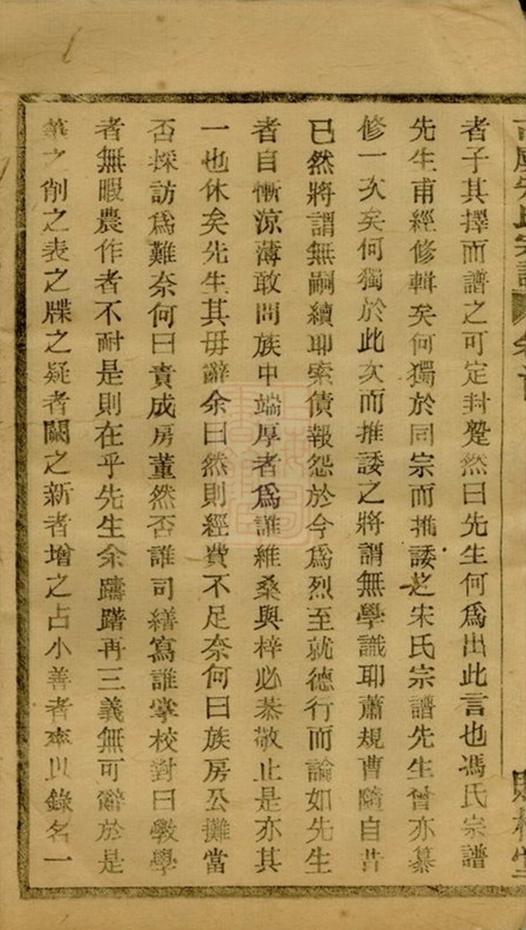 者子其擇而譜之可定封蹙然曰先生何爲出此言也馮氏宗譜
先生甫經修輯矣何獨於同宗而推諉之宋氏宗譜先生曾亦纂
修一次矣何獨於此次而推諉之將謂無學識耶蕭規曹隨自昔
已然將謂無嗣續耶索債報怨於今爲烈至就德行而論如先生
者自慚涼薄敢問族中端厚者爲誰維桑與梓必恭敬止是亦其
一也休矣先生其毋辭余曰然則經費不足奈何曰族房公攤當
否採訪爲難奈何曰責成房董然否誰司繕寫誰掌校對曰敎學
者無暇農作者不耐是則在乎先生余躊躇再三義無可辭於是
筆之削之表之牒之疑者闕之新者增之占小善者率以錄名一